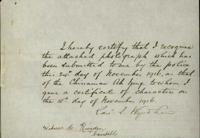 I hereby certify that I recognise
the attached photograph which has
been submitted to me by the police
this 24th day of November 1916, as that
of the Chinaman Ah Lung, to whom I
gave a certificate of character on
the 16th day of November 1916.